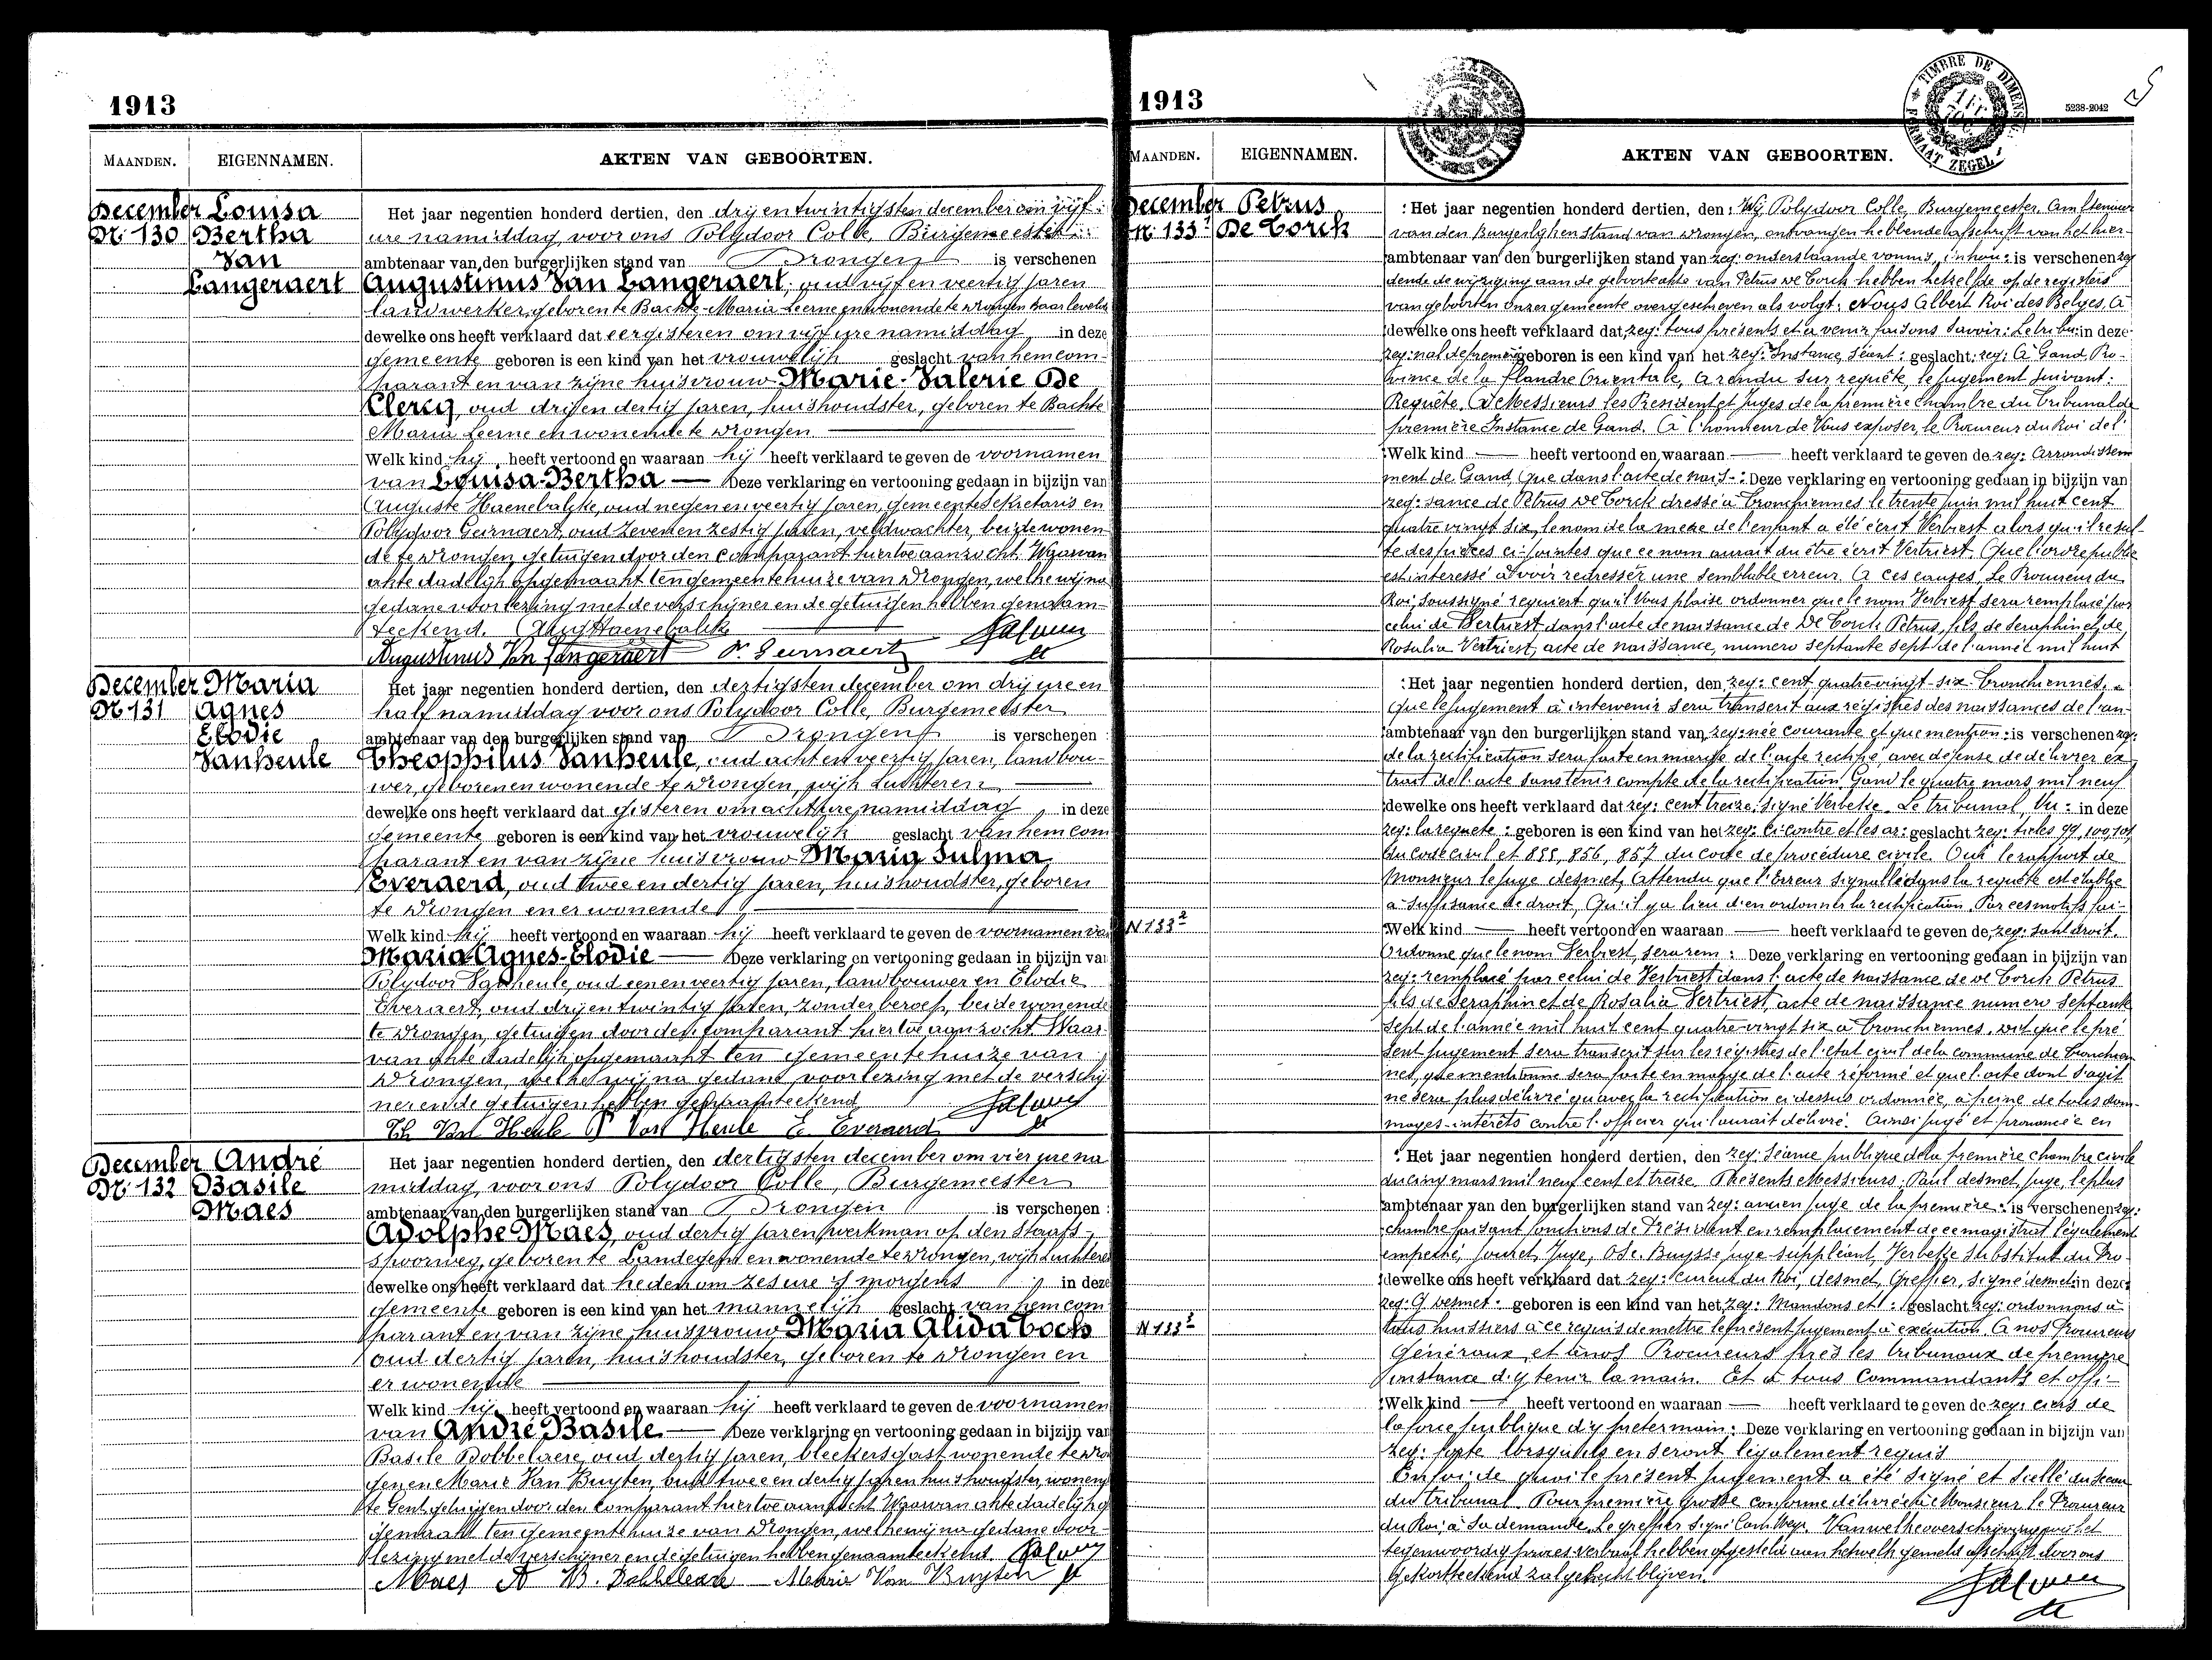 1913
MAANDEN. EIGENNAMEN. AKTEN VAN GEBOORTEN.
December Louisa
Nr 130 Bertha
Van
Langeraert
Het jaar negentien honderd dertien, den drijentwintigsten december om vijf
ure namiddag voor ons Polydoor Colle, Burgemeester
ambtenaar van den burgerlijken stand van Drongen is verschenen
Augustinus Van Langeraert, oud vijf en veertig jaren
landwerker, geboren te Bachte-Maria-Leerne en wonende te Drongen
dewelke ons heeft verklaard dat eergisteren om vijf ure namiddag in deze
gemeente geboren is een kind van het vrouwelijk geslacht van hem com-
parant en van zijne huisvrouw Marie-Valerie De
Clercq, oud drij en dertig jaren, huishoudster, geboren te Bachte
Maria Leerne en wonende te Drongen
Welk kind hij heeft vertoond en waaraan hij heeft verklaard te geven de voornamen
van Louisa-Bertha Deze verklaring en vertooning gedaan in bijzijn van
Auguste Haenebalcke, oud negen en veertig jaren, gemeentesekretaris en
Polydoor Geirnaert, oud zeven en zestig jaren, veldwachter, beide wonen-
de te Drongen, getuigen door den comparant hiertoe aanzocht. Waarvan
akte dadelijk opgemaakt ten gemeentehuize van Drongen, welke wij na
gedane voorlezing met de verschijner en de getuigen hebben genaam-
teekend. Aug Haenebalcke
Augustinus Van Langeraert P. Geirnaert
December Maria
Nr 131 Agnes
Elodie
Vanheule
Het jaar negentien honderd dertien, den dertigsten december om drij ure en
half namiddag voor ons Polydoor Colle, Burgemeester
ambtenaar van den burgerlijken stand van Drongen is verschenen
Theophilus Vanheule, oud acht en veertig jaren, landbou-
wer, geboren en wonende te Drongen, wijk Luchteren
dewelke ons heeft verklaard dat gisteren om acht ure namiddag in deze
gemeente geboren is een kind van het vrouwelijk geslacht van hem com
parant en van zijne huisvrouw Maria Sulma
Everaerd, oud twee en dertig jaren, huishoudster, geboren
te Drongen en er wonende
Welk kind hij heeft vertoond en waaraan hij heeft verklaard te geven de voornamen van
Maria-Agnes-Elodie Deze verklaring en vertooning gedaan in bijzijn van
Polydoor Vanheule, oud een en veertig jaren, landbouwer en Elodie
Everaert, oud drij en twintig jaren, zonder beroep, beide wonende
te Drongen, getuigen door den comparant hiertoe aanzocht. Waar-
van akte dadelijk opgemaakt ten gemeentehuize van
Drongen, welke wij na gedane voorlezing met de verschij-
ner en de getuigen hebben genaamteekend
Th Van Heule P Van Heule E. Everaerd
December André
Nr 132 Basile
Maes
Het jaar negentien honderd dertien, den dertigsten december om vier ure na
middag, voor ons Polydoor Colle, Burgemeester
ambtenaar van den burgerlijken stand van Drongen is verschenen
Adolphe Maes, oud dertig jaren, werkman op den staats-
spoorweg, geboren te Landegem en wonende te Drongen, wijk Luchteren
dewelke ons heeft verklaard dat heden om zes ure 's morgens in deze
gemeente geboren is een kind van het mannelijk geslacht van hem com
parant en van zijne huisvrouw Maria Alida Cock
oud dertig jaren, huishoudster, geboren te Drongen en
er wonende
Welk kind hij heeft vertoond en waaraan hij heeft verklaard te geven de voornamen
van André Basile Deze verklaring en vertooning gedaan in bijzijn van
Basile Dobbelaere, oud dertig jaren, bleekersgast, wonende te Dron
gen en Marie Van Buyten, oud twee en dertig jaren huishoudster, wonende
te Gent, getuigen door den comparant hiertoe aanzocht. Waarvan akte dadelijk op
gemaakt ten gemeentehuize van Drongen, welke wij na gedane voor-
lezing met de verschijner en de getuigen hebben genaamteekend.
Maes A B. Dobbelaere Marie Van Buyten
1913
TIMBRE DE DIMENS. FORMAAT ZEGEL
5238-2042
MAANDEN. EIGENNAMEN. AKTEN VAN GEBOORTEN.
December Petrus
Nr 133 De Corck
Het jaar negentien honderd dertien, den Wij Polydoor Colle, Burgemeester, Ambtenaar
van den Burgerlijken Stand van Drongen, ontvangen hebbende afschrift van het hier-
ambtenaar van den burgerlijken stand van zeg: onderstaande vonnis, inhou: is verschenen zeg
dende de wijziging aan de geboorteakte van Petrus De Corck hebben hetzelfde op de registers
van geboorten onzer gemeente overgeschreven als volgt: Nous Albert Roi des Belges, A
dewelke ons heeft verklaard dat zeg: tous présents et à venir faisons savoir: Le tribu: in deze
zeg: nal de première geboren is een kind van het zeg: Instance séant: geslacht zeg: à Gand, Pro-
vince de la Flandre Orientale, a rendu sur requête, le jugement suivant:
Requête. A Messieurs les Président et Juges de la première Chambre du Tribunal de
première Instance de Gand. A l'honneur de Vous exposer, le Procureur du Roi de l'
Welk kind heeft vertoond en waaraan heeft verklaard te geven de zeg: Arrondissem
ment de Gand, Que dans l'acte de nais-: Deze verklaring en vertooning gedaan in bijzijn van
zeg: sance de Petrus De Corck dressé à Tronchiennes le trente juin mil huit cent
quatre vingt six, le nom de la mère de l'enfant a été écrit Verbiest alors qu'il résul-
te des pièces ci-jointes que ce nom aurait dû être écrit Vertriest. Que l'ordre public
est intéressé à voir redresser une semblable erreur. A ces causes, Le Procureur du
Roi soussigné requiert qu'il Vous plaise ordonner que le nom Verbiest sera remplacé par
celui de Vertriest dans l'acte de naissance de De Corck Petrus, fils de Seraphin et de
Rosalia Vertriest, acte de naissance, numero septante sept de l'année mil huit
Het jaar negentien honderd dertien, den zeg: cent quatre vingt-six Tronchiennes.
Que le jugement à intervenir sera transcrit aux registres des naissances de l'an-
ambtenaar van den burgerlijken stand van zeg: née courante et que mention: is verschenen zeg:
de la rectification sera faite en marge de l'acte rectifié, avec défense de délivrer ex
trait de l'acte sans tenir compte de la rectification. Gand le quatre mars mil neuf
dewelke ons heeft verklaard dat zeg: cent treize. signé Verbeke. Le tribunal, Vu: in deze
zeg: la requête: geboren is een kind van het zeg: ci-contre et les ar: geslacht zeg: ticles 99, 100, 101,
du code civil et 855, 856, 857 du code de procédure civile. Ouï le rapport de
Monsieur le juge Desmet, Attendu que l'erreur signalée dans la requête est établie
à suffisance de droit, Qu'il y a lieu d'en ordonner la rectification. Par ces motifs fai-
N 133²
Welk kind heeft vertoond en waaraan heeft verklaard te geven de zeg: sant droit.
Ordonne que le nom Verbiest, sera rem: Deze verklaring en vertooning gedaan in bijzijn van
zeg: remplacé par celui de Vertriest dans l'acte de naissance de De Corck Petrus
fils de Seraphin et de Rosalia Vertriest, acte de naissance numero septante
sept de l'année mil huit cent quatre vingt six à Tronchiennes. Dit que le pré
sent jugement sera transcrit sur les régistres de l'état civil de la commune de Tronchien
nes, que mention sera faite en marge de l'acte réformé et que l'acte dont s'agit
ne sera plus délivré qu'avec la rectification ci-dessus ordonnée, à peine de tous dom-
mages-intérêts contre l'officier qui l'aurait délivré. Ainsi jugé et prononcé en
Het jaar negentien honderd dertien, den zeg: séance publique de la première chambre civile
du cinq mars mil neuf cent et treize. Présents Messieurs: Paul Desmet, juge, le plus
ambtenaar van den burgerlijken stand van zeg: ancien juge de la première: is verschenen zeg:
chambre faisant fonctions de Président en remplacement de ce magistrat légalement
empêché, Jouret, Juge, Buysse juge suppléant, Verbeke substitut du Pro-
dewelke ons heeft verklaard dat zeg: cureur du Roi, Desmet, Greffier, signé Desmet: in deze
zeg: G Desmet: geboren is een kind van het zeg: Mandons et: geslacht zeg: ordonnons à
N 133³
tous huissiers à ce requis de mettre le présent jugement à exécution. A nos Procureurs
Généraux et à nos Procureurs près les tribunaux de première
instance d'y tenir la main. Et à tous Commandants et offi-
Welk kind heeft vertoond en waaraan heeft verklaard te geven de zeg: ciers de
la force publique d'y preter main: Deze verklaring en vertooning gedaan in bijzijn van
zeg: forte lorsqu'ils en seront légalement requis
En foi de quoi le présent jugement a été signé et scellé du sceau
du tribunal. Pour première grosse conforme délivrée à Monsieur le Procureur
du Roi à sa demande. Le greffier signé Van welke overschrijving wij het
tegenwoordig proces verbaal hebben opgesteld aan hetwelk gemeld afschrift door ons
gekortteekend zal gehecht blijven.